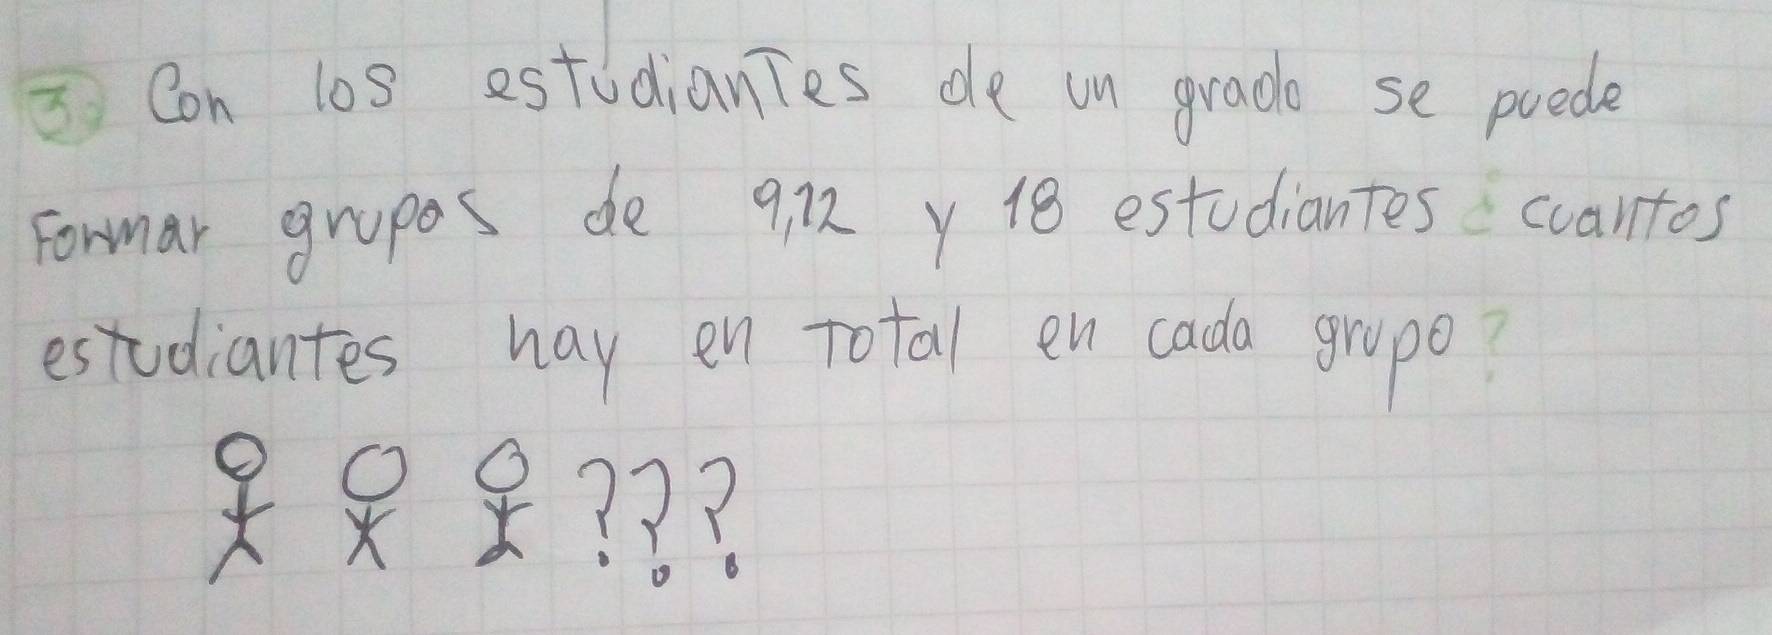 3. Con los estudianTes de un grado se puede
Formar grupos de 9,12 y 18 estudiantes ¿ cuantos
estudiantes hay en Total en cada grupo?
???